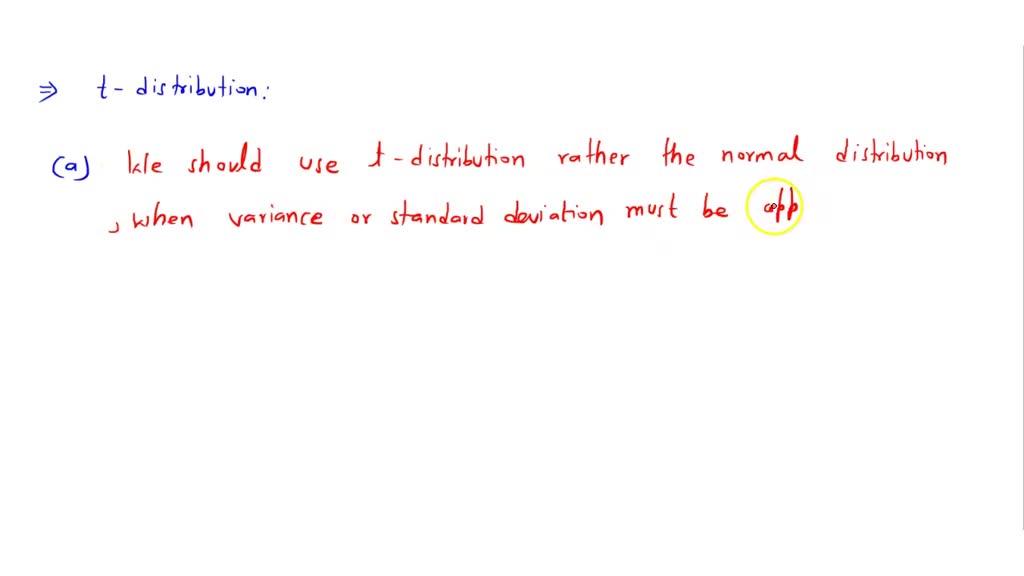 ⇒ t - distribution:
(a) We should use t - distribution rather the normal distribution
, when variance or standard deviation must be app